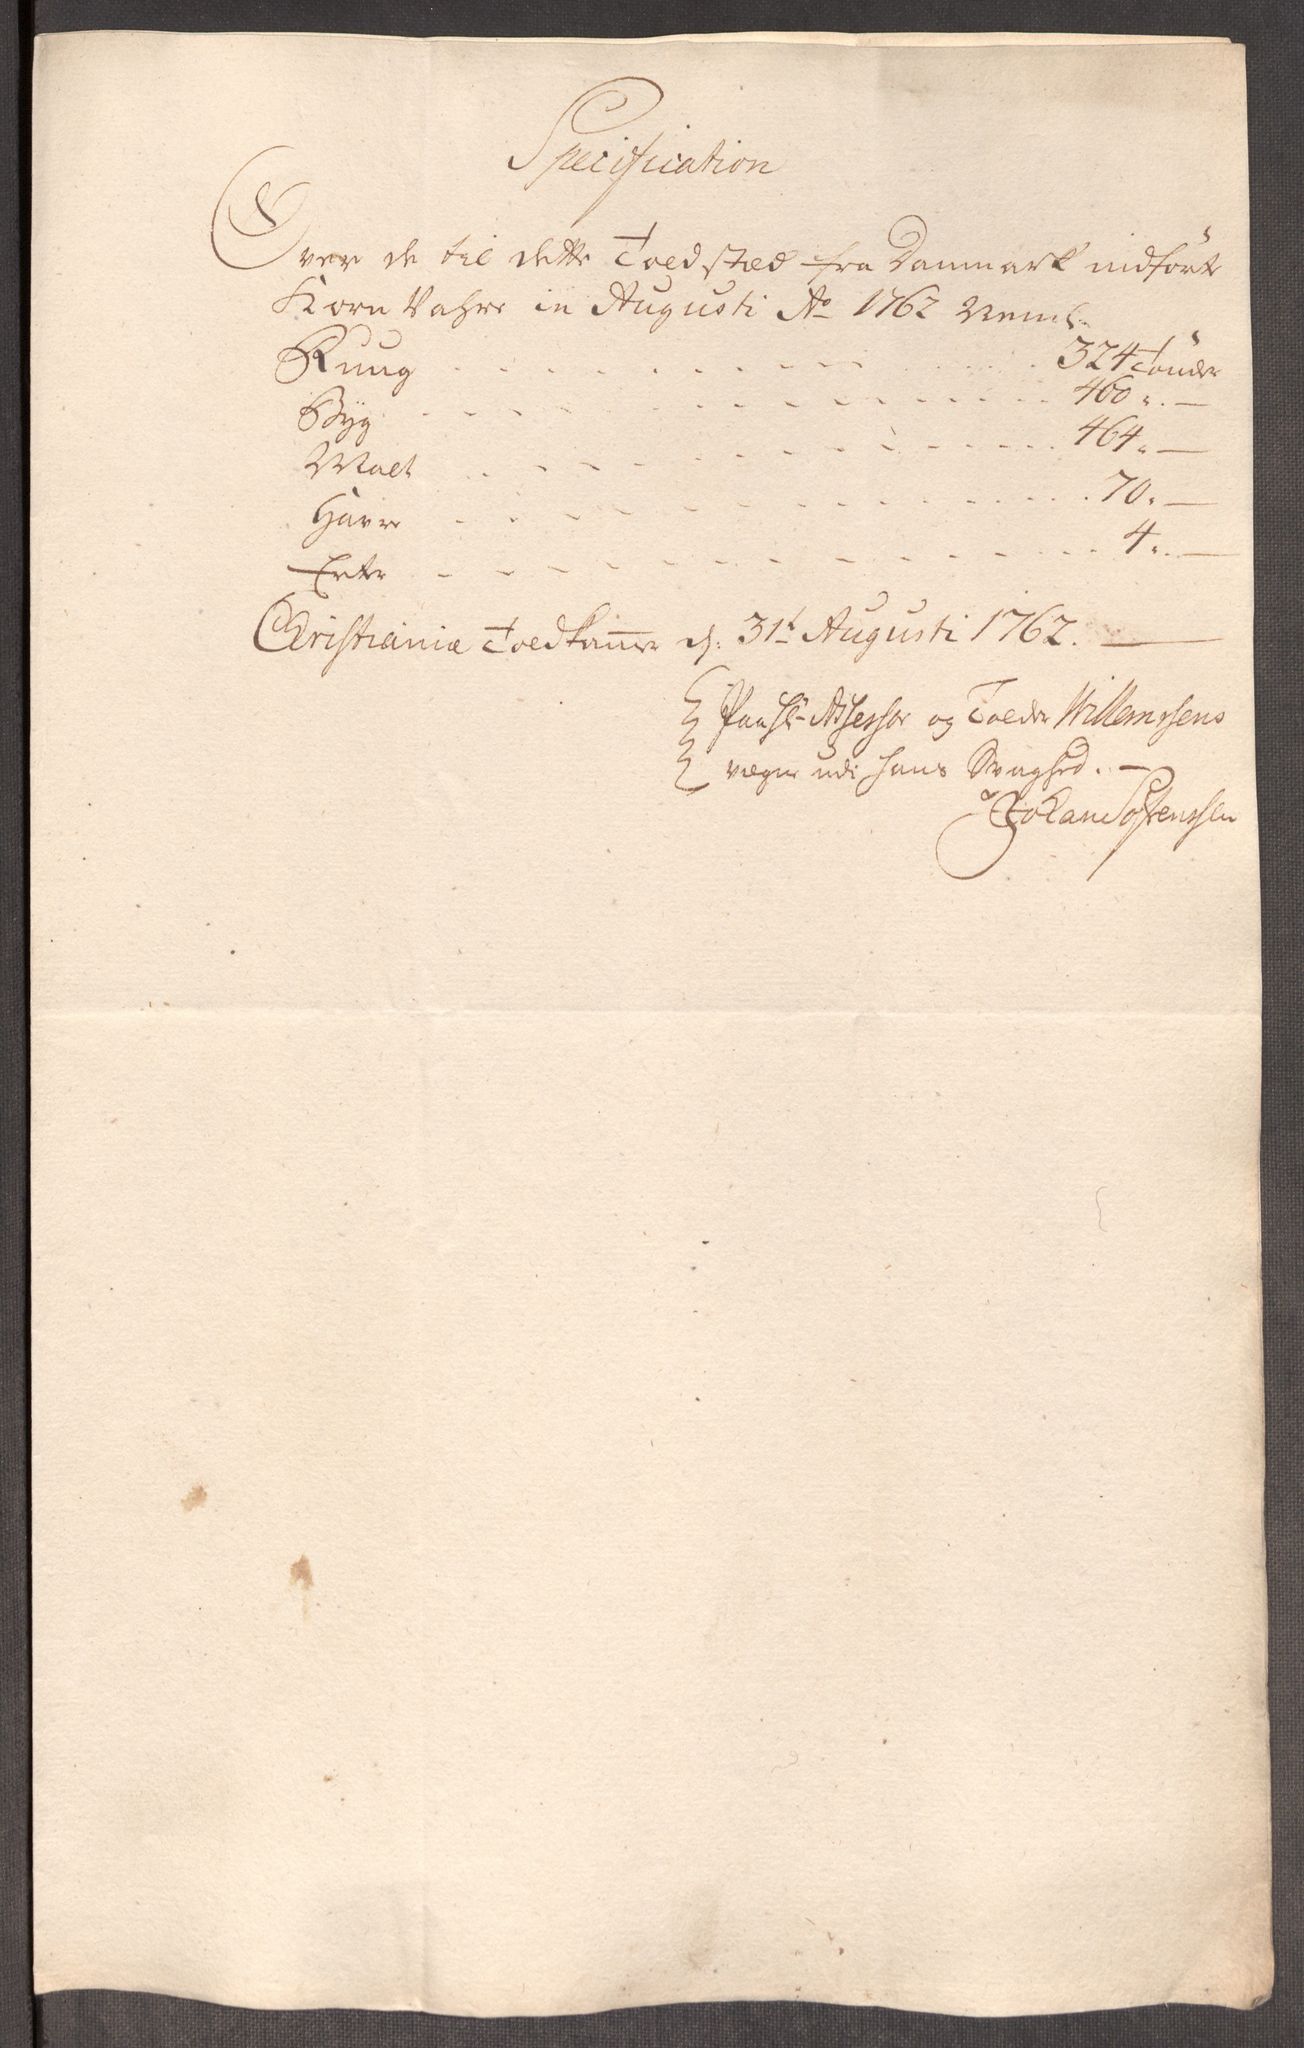 Specification
Over de til dette Toldsted fra Danmark indförte
Korn Vahre in Augusti Ao 1762 Neml.
Ruug . . . . . . . . . . . 324 Tönder
Byg . . . . . . . . . . . 460 " . —
Malt . . . . . . . . . . . 464 " —
Havre . . . . . . . . . . . 70 " —
Erter . . . . . . . . . . . 4 " . —
Christiania Toldkammer d: 31t Augusti 1762. —
Paa Hr Assessor og Tolder Willemsens
vegne udi hans Svaghed. —
Johan Sörenssen